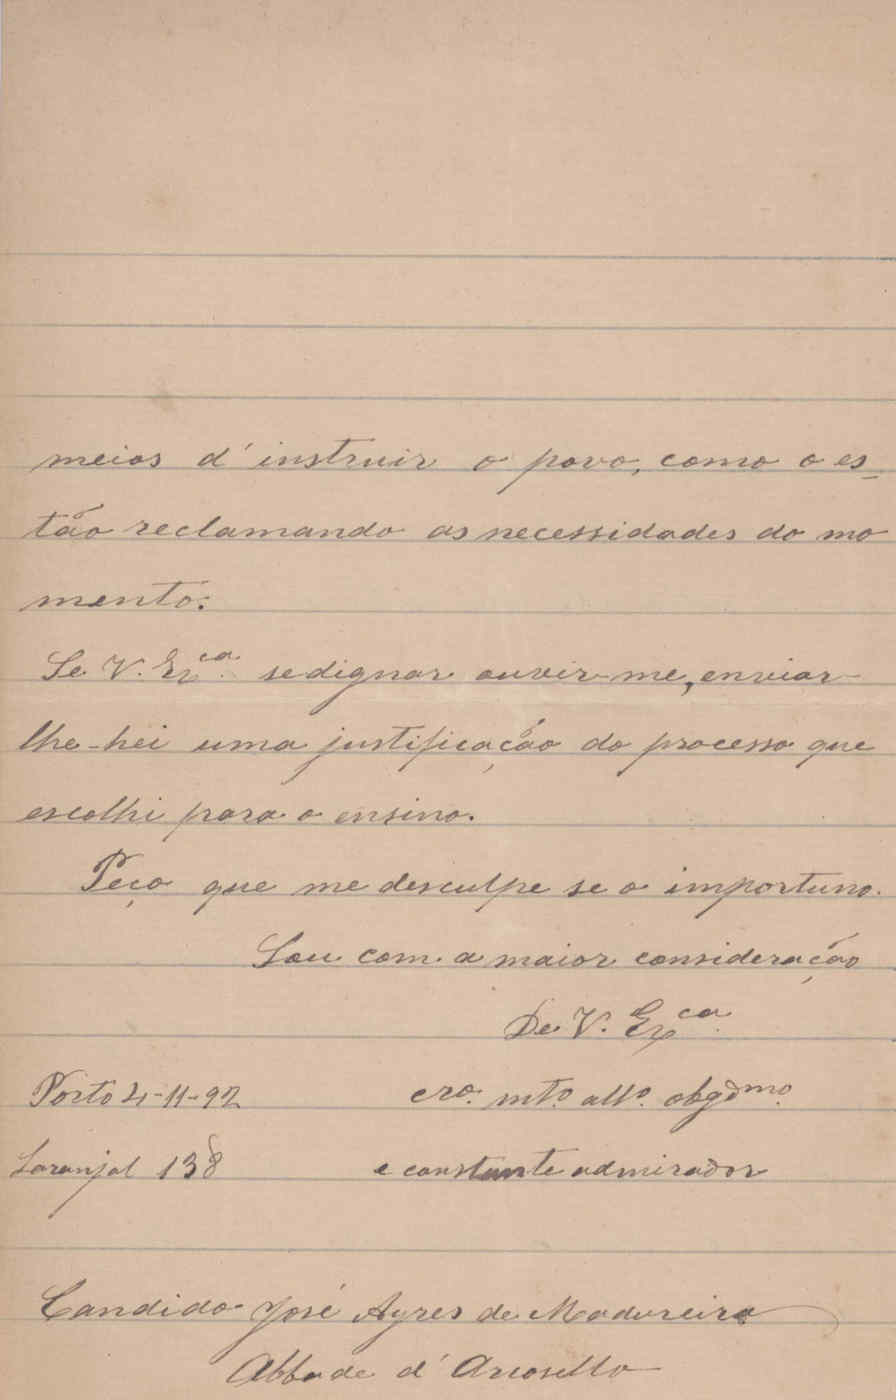 meios d' instruir o povo, como o es-
tão reclamando as necessidades do mo
mento.
Se V. Exca. se dignar ouvir-me, enviar-
lhe-hei uma justificação do processo que
escolhi para o ensino.
Peço que me desculpe se o importuno.
Sou com a maior consideração
De V. Exca.
Porto 4-11-92 cro. mto. atto. obgdmo.
Laranjal 138 e constante admirador
Candido José Ayres de Madureira
Abbade d' Arcosello